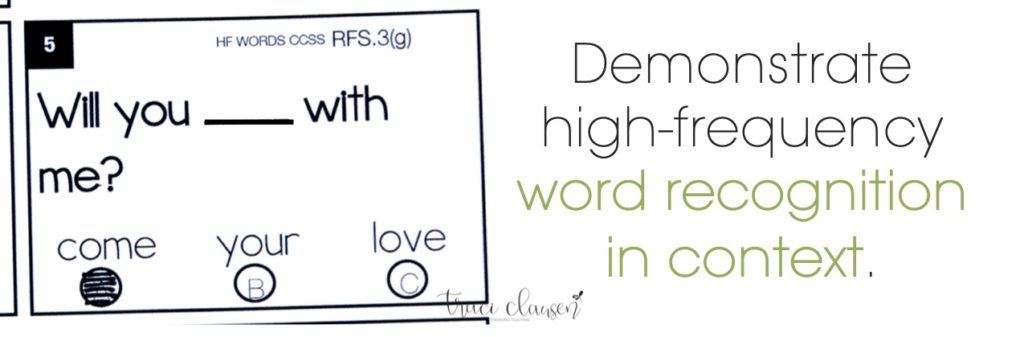 5
HF WORDS CCSS RFS.3(g)
Will you ____ with
me?
come your love
B C
traci clausen
Demonstrate
high-frequency
word recognition
in context.